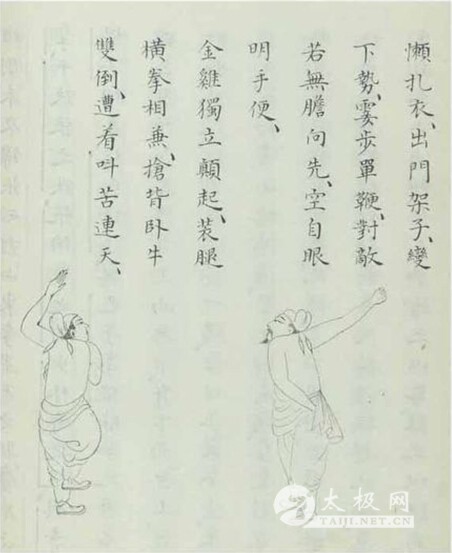 懶扎衣、出門架子、變
下勢、霎步單鞭、對敵
若無膽向先、空自眼
明手便、
金雞獨立顛起、裝腿
橫拳相兼、搶背卧牛
雙倒、遭着叫苦連天、
太极网
TAIJI.NET.CN